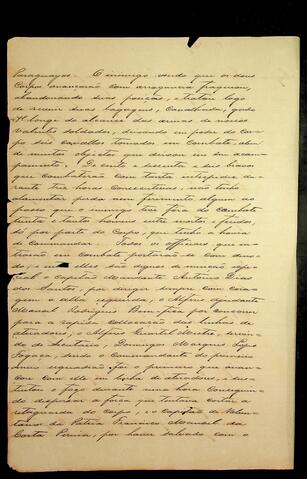 Paraguayos. O inimigo vendo que os dous
Corpos avançavão com arrogancia fugirão,
abandonando suas posições, e tratou logo
de reunir suas bagagens, Cavalhada, gado
longe do alcance das armas de nossos
valentes soldados, deixando em poder do Cor-
po seis cavallos tomados em Combate, alem
de muitos objectos que deixou em seu acam-
pamento. De oute e sessenta e dis braços
que combaterão com tanta intrepidez du-
rante tres horas Consecutivas, não tenho
a lamentar perda nem ferimento algum ao
passo que o inimigo teve fora do Combate
trinta e tantos homens entre mortos e feridos
só por parte do Corpo, que tenho a honra
de Commandar. Todos os officiaes que en-
trarão em Combate portarão-se com denodo;
e entre elles são dignos de menção espe-
cial o Capitão Mandante Antonio
dos Santos, por dirigir sempre com cora-
gem a ala esquerda; o Alferes Ajudante
Manoel Rodrigues Bom-fica por concorrer
para a rapida collocação da linha de
atiradores; o Alferes Quartel Mestre, servin-
do de Secretario, Domingos Marques Lopes
Fogaça, sendo o Commandante do primeiro
meio esquadrão foi o primeiro que avan-
çou com elle em linha de atiradores, e sus-
tentou o fogo durante uma hora Conseguin-
do dispersar a força que tentava cortar a
retaguarda do Corpo; e o Capitão de Volun-
tarios da Patria Francisco Manoel da
Costa Pereira, por haver salvado com o